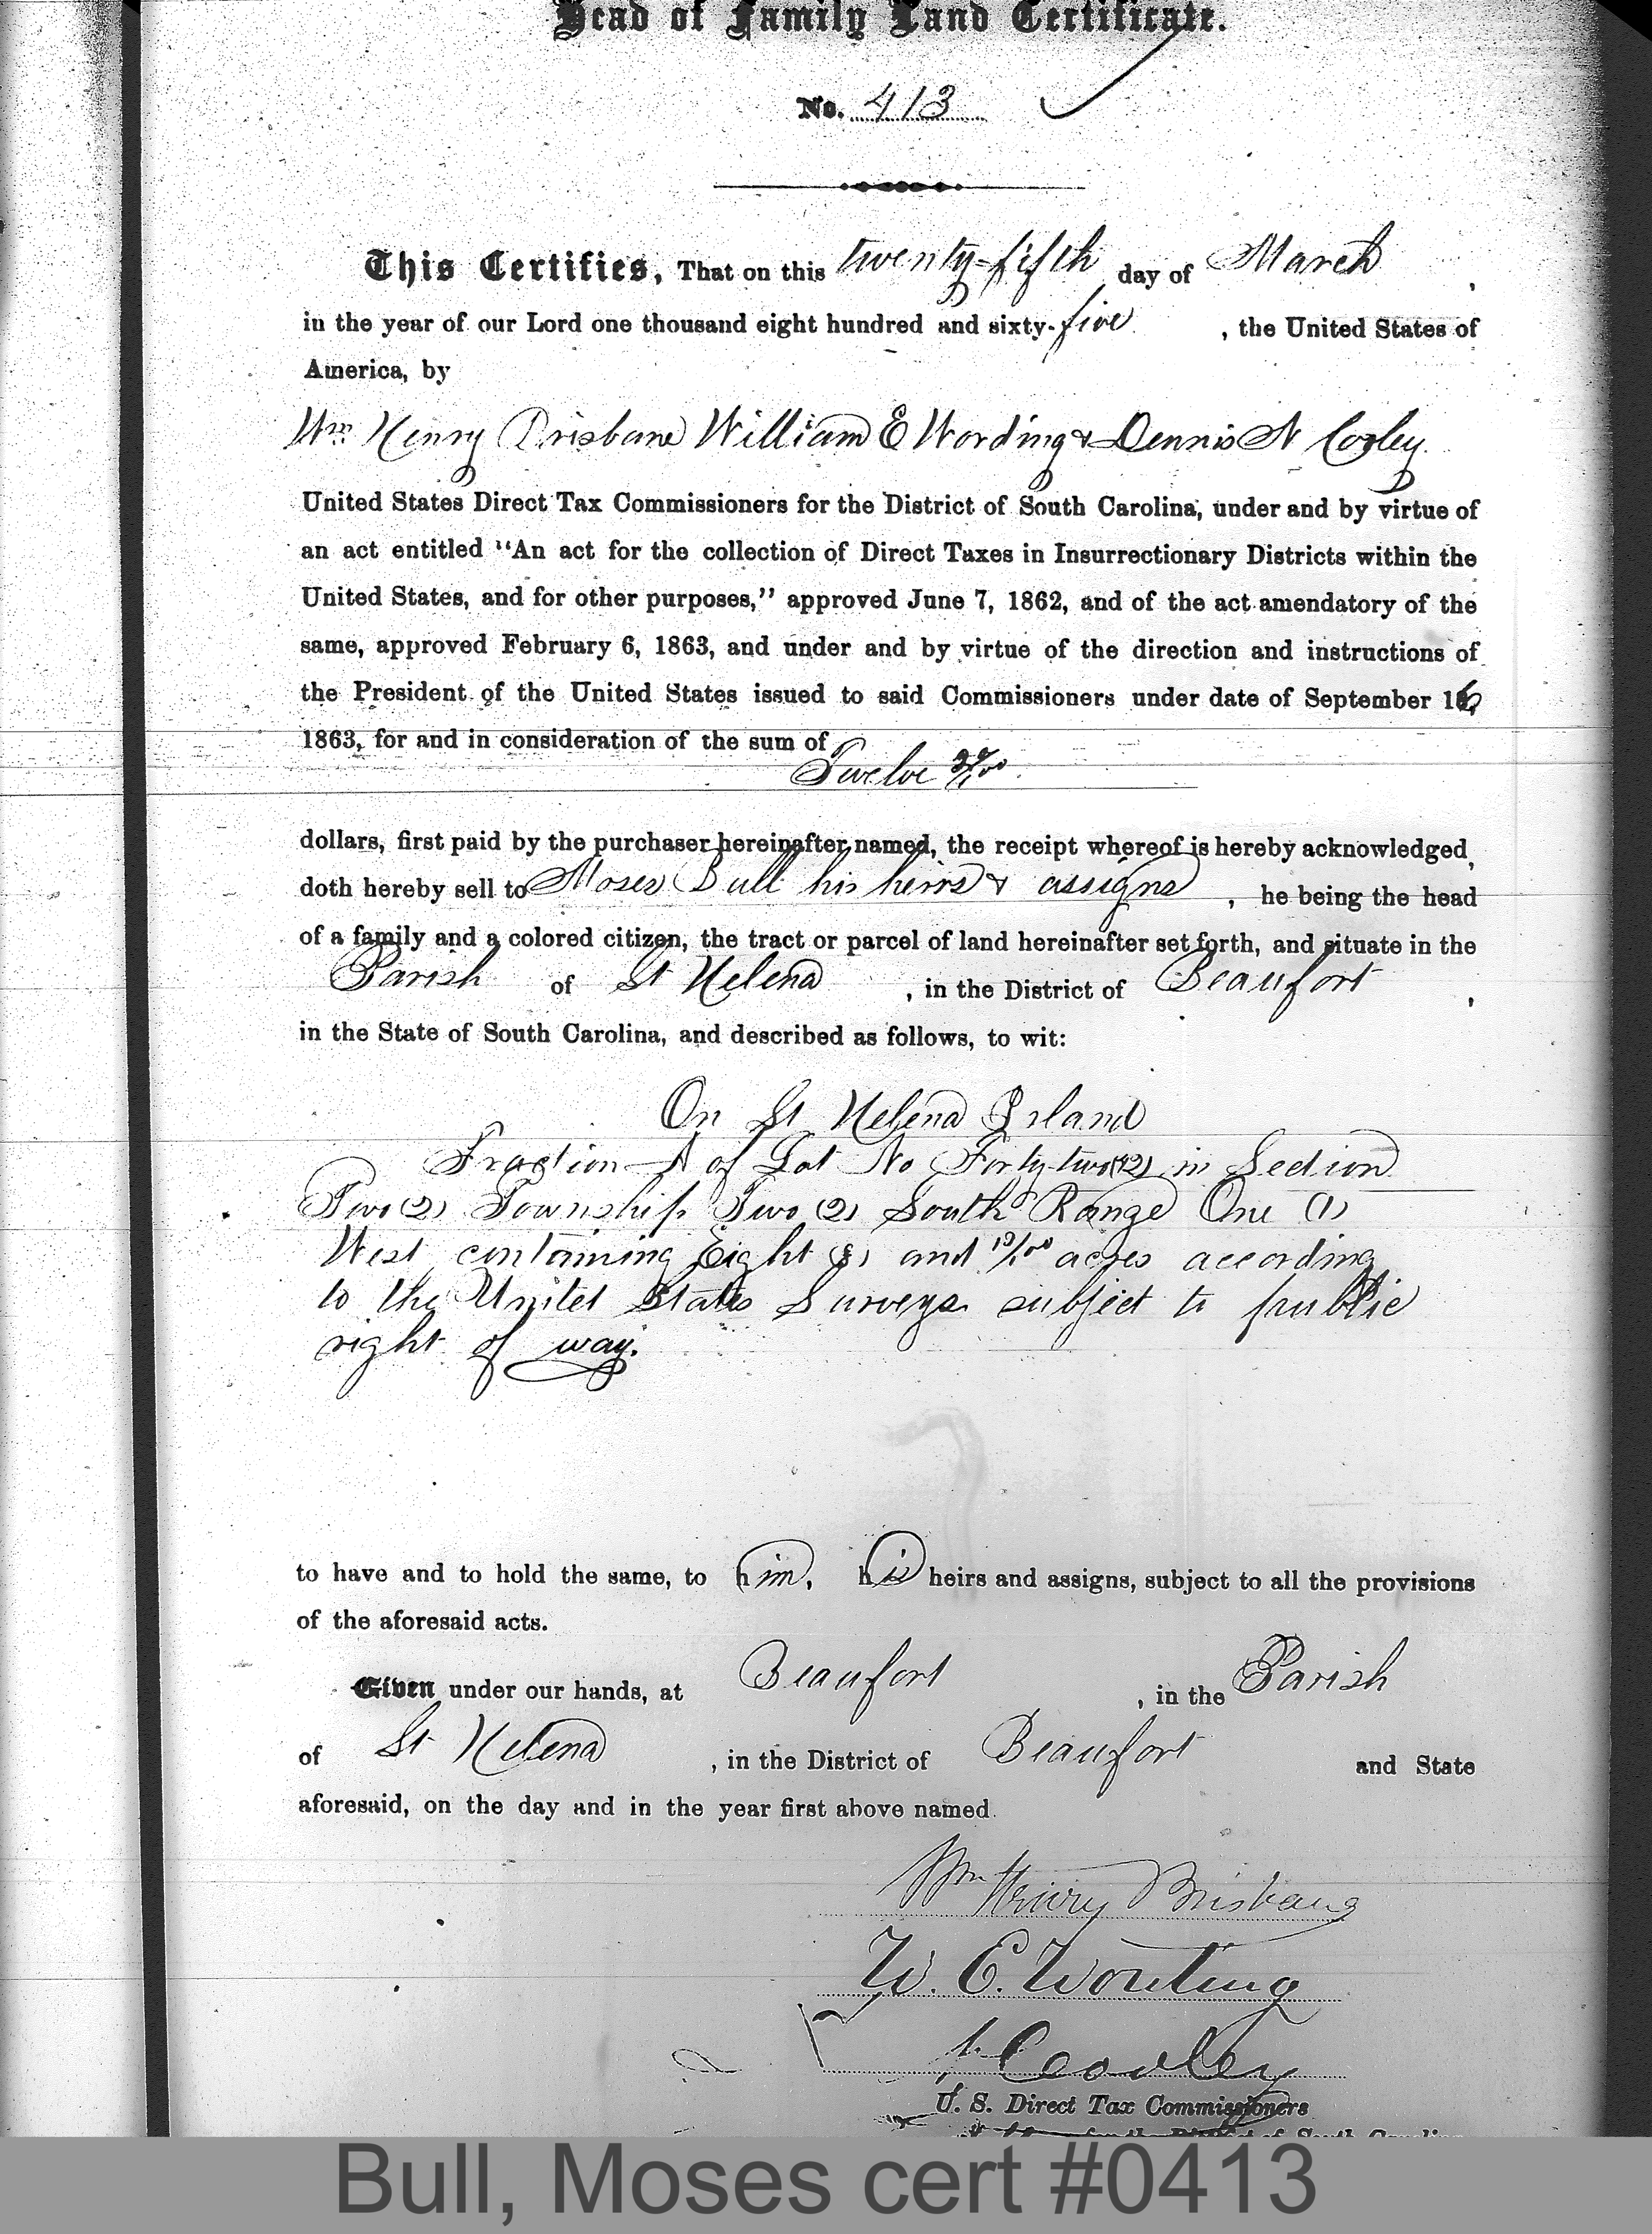 Head of Family Land Certificate.
No. 413
This Certifies, That on this twenty-fifth day of March,
in the year of our Lord one thousand eight hundred and sixty-five, the United States of
America, by
Wm Henry Brisbane William E Wording & Dennis N Cooley
United States Direct Tax Commissioners for the District of South Carolina, under and by virtue of
an act entitled "An act for the collection of Direct Taxes in Insurrectionary Districts within the
United States, and for other purposes," approved June 7, 1862, and of the act amendatory of the
same, approved February 6, 1863, and under and by virtue of the direction and instructions of
the President of the United States issued to said Commissioners under date of September 16,
1863, for and in consideration of the sum of
Twelve
dollars, first paid by the purchaser hereinafter named, the receipt whereof is hereby acknowledged,
doth hereby sell to Moses Bull his heirs & assigns, he being the head
of a family and a colored citizen, the tract or parcel of land hereinafter set forth, and situate in the
Parish of St Helena, in the District of Beaufort,
in the State of South Carolina, and described as follows, to wit:
On St Helena Island
Fraction A of Lot No Forty-two (42) in Section
Two (2) Township Two (2) South Range One (1)
West containing Eight (8) and acres according
to the United States Surveys subject to public
right of way.
to have and to hold the same, to him, his heirs and assigns, subject to all the provisions
of the aforesaid acts.
Given under our hands, at Beaufort, in the Parish
of St Helena, in the District of Beaufort and State
aforesaid, on the day and in the year first above named.
Wm Henry Brisbane
W. E. Wording
Cooley
U. S. Direct Tax Commissioners
for the District of South Carolina
Bull, Moses cert #0413